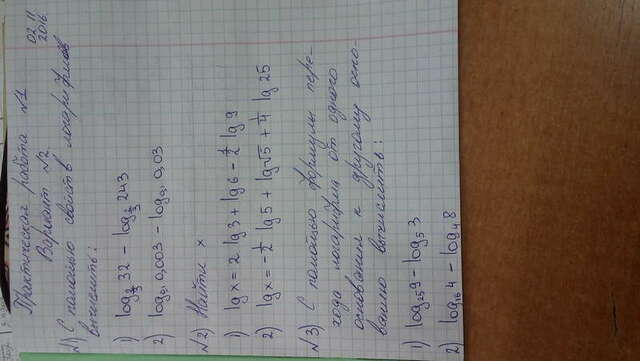 Практическая работа №1 02.11
Вариант №2. 2016.
№1) С помощью свойств логарифмов
вычислить:
1) log_{2/3} 32 - log_{2/3} 243
2) log_{0,1} 0,003 - log_{0,1} 0,03
№2) Найти x
1) lg x = 2 lg 3 + lg 6 - 1/2 lg 9
2) lg x = -1/2 lg 5 + lg √5 + 1/4 lg 25
№3) С помощью формулы пере-
хода логарифма от одного
основания к другому осно-
ванию вычислить:
1) log_{25} 9 - log_5 3
2) log_{16} 4 - log_4 8